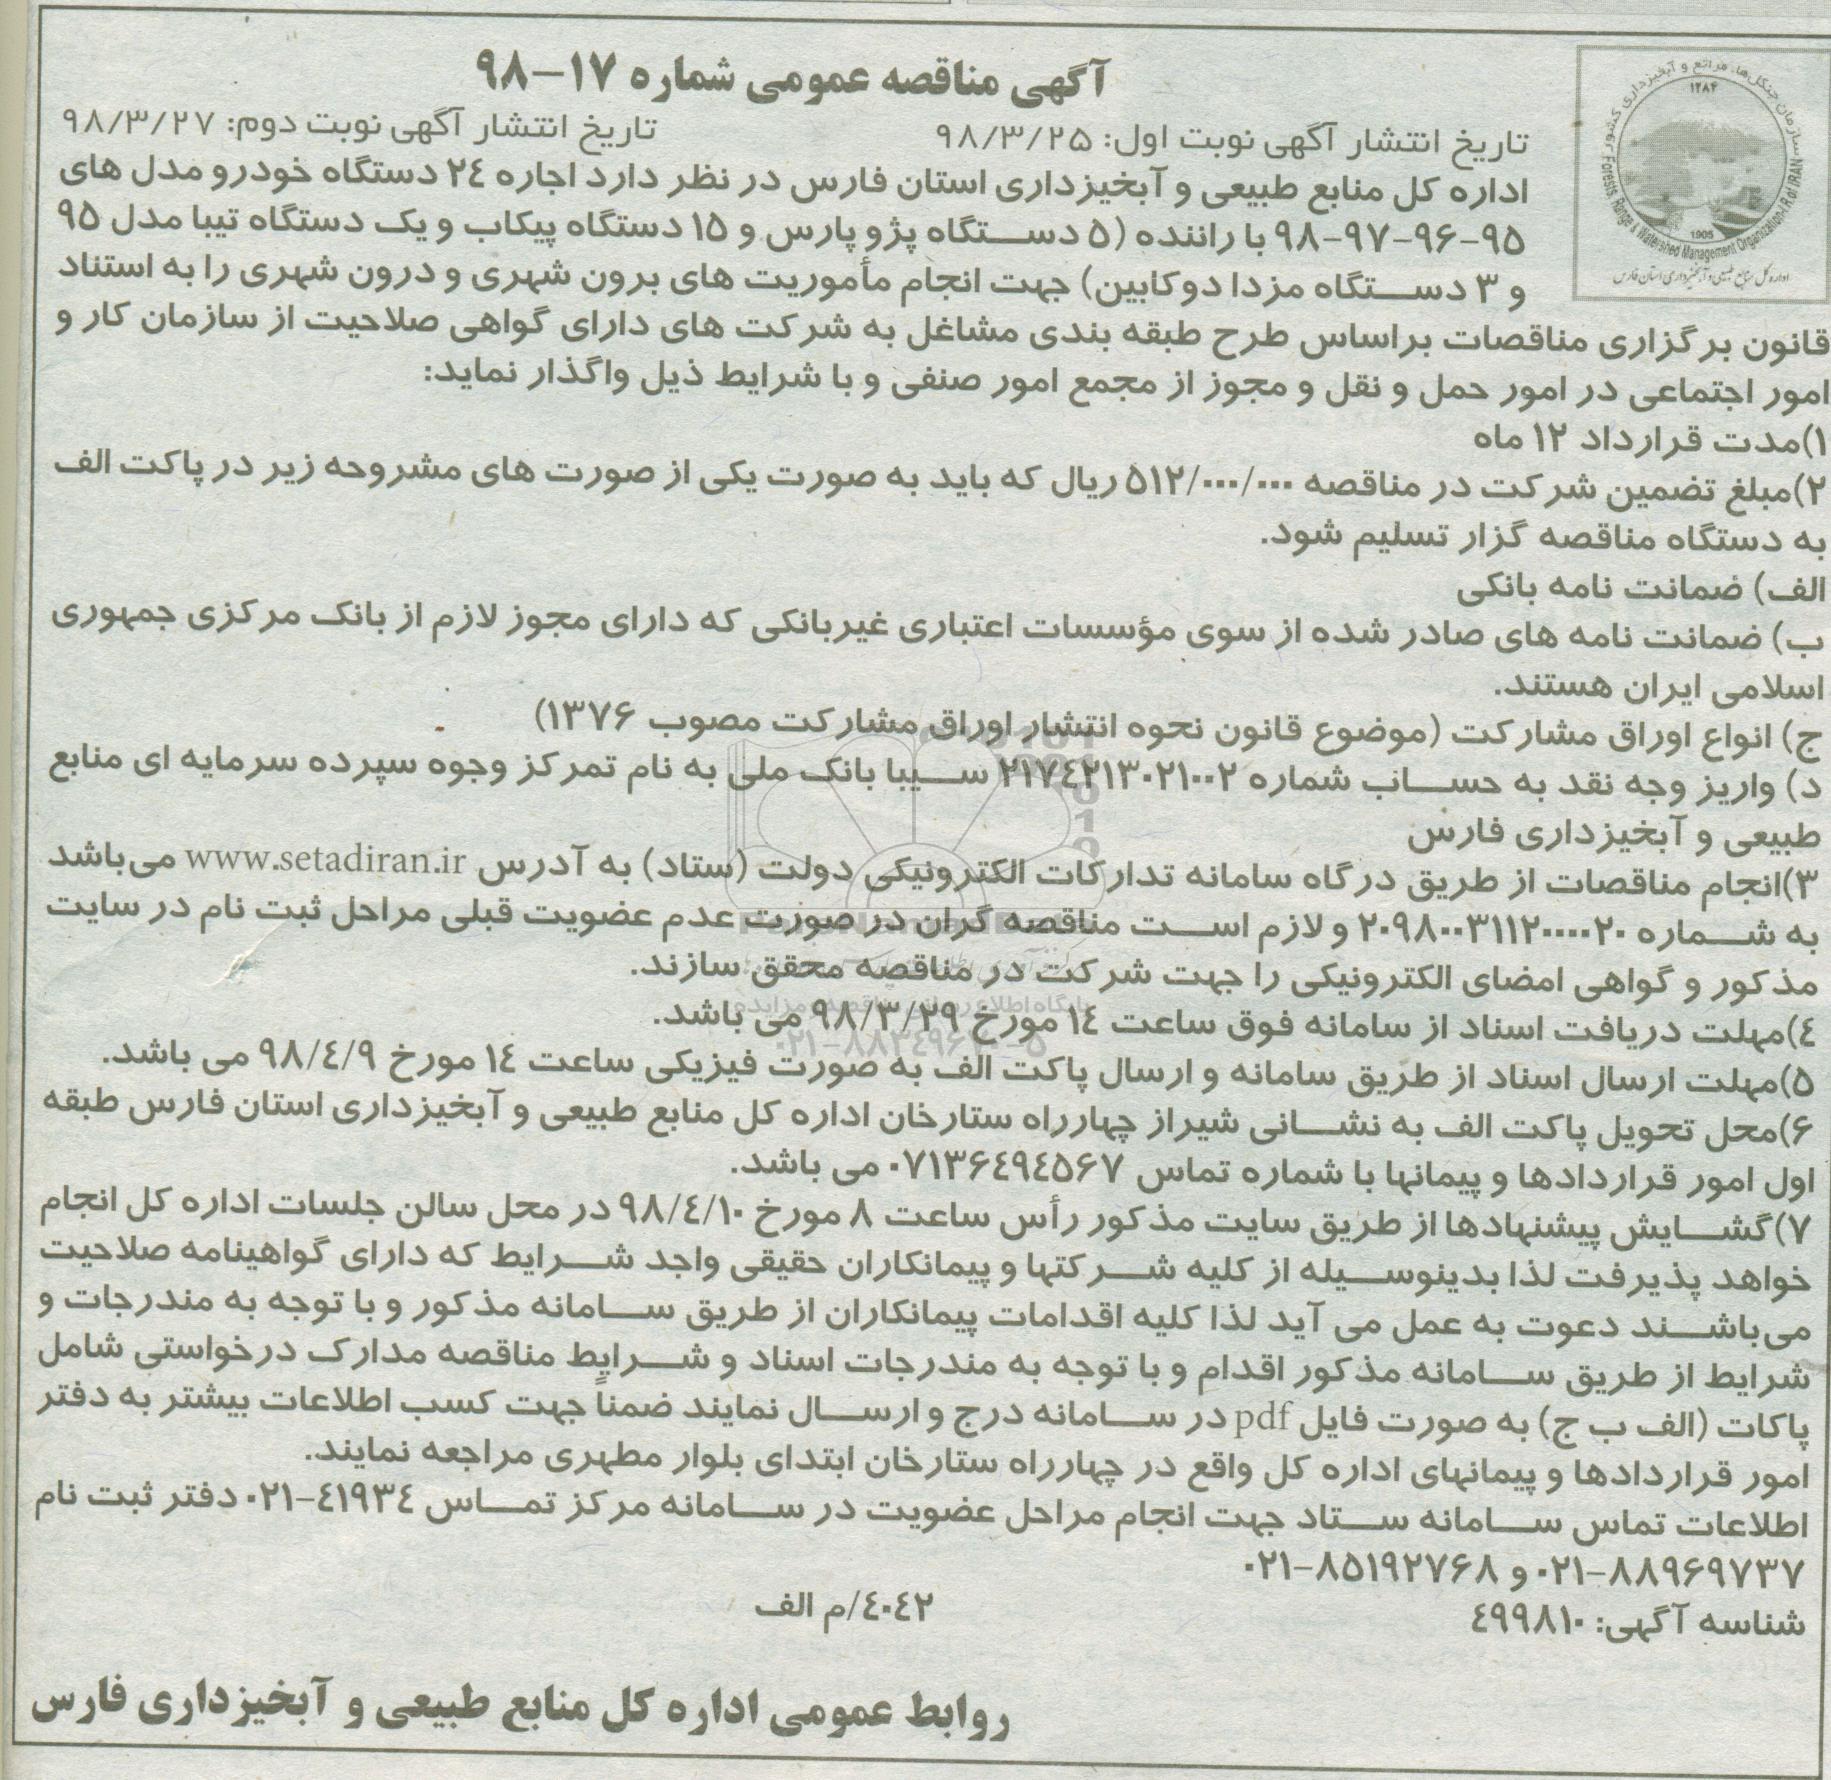 آگهی مناقصه عمومی شماره ۱۷-۹۸
سازمان جنگل‌ها، مراتع و آبخیزداری کشور
۱۲۸۴
1905
Forests, Range & Watershed Management Organization I.R of IRAN
اداره کل منابع طبیعی و آبخیزداری استان فارس
تاریخ انتشار آگهی نوبت اول: ۹۸/۳/۲۵ تاریخ انتشار آگهی نوبت دوم: ۹۸/۳/۲۷
اداره کل منابع طبیعی و آبخیزداری استان فارس در نظر دارد اجاره ۲٤ دستگاه خودرو مدل های
۹۵-۹۶-۹۷-۹۸ با راننده (۵ دستگاه پژو پارس و ۱۵ دستگاه پیکاب و یک دستگاه تیبا مدل ۹۵
و ۳ دستگاه مزدا دوکابین) جهت انجام مأموریت های برون شهری و درون شهری را به استناد
قانون برگزاری مناقصات براساس طرح طبقه بندی مشاغل به شرکت های دارای گواهی صلاحیت از سازمان کار و
امور اجتماعی در امور حمل و نقل و مجوز از مجمع امور صنفی و با شرایط ذیل واگذار نماید:
۱)مدت قرارداد ۱۲ ماه
۲)مبلغ تضمین شرکت در مناقصه ۵۱۲/۰۰۰/۰۰۰ ریال که باید به صورت یکی از صورت های مشروحه زیر در پاکت الف
به دستگاه مناقصه گزار تسلیم شود.
الف) ضمانت نامه بانکی
ب) ضمانت نامه های صادر شده از سوی مؤسسات اعتباری غیربانکی که دارای مجوز لازم از بانک مرکزی جمهوری
اسلامی ایران هستند.
ج) انواع اوراق مشارکت (موضوع قانون نحوه انتشار اوراق مشارکت مصوب ۱۳۷۶)
د) واریز وجه نقد به حساب شماره ۲۱۷٤۲۱۳۰۲۱۰۰۲ سیبا بانک ملی به نام تمرکز وجوه سپرده سرمایه ای منابع
طبیعی و آبخیزداری فارس
۳)انجام مناقصات از طریق درگاه سامانه تدارکات الکترونیکی دولت (ستاد) به آدرس www.setadiran.ir می‌باشد
به شماره ۲۰۹۸۰۰۳۱۱۲۰۰۰۰۲۰ و لازم است مناقصه گران در صورت عدم عضویت قبلی مراحل ثبت نام در سایت
مذکور و گواهی امضای الکترونیکی را جهت شرکت در مناقصه محقق سازند.
٤)مهلت دریافت اسناد از سامانه فوق ساعت ۱٤ مورخ ۹۸/۳/۲۹ می باشد.
۵)مهلت ارسال اسناد از طریق سامانه و ارسال پاکت الف به صورت فیزیکی ساعت ۱٤ مورخ ۹۸/٤/۹ می باشد.
۶)محل تحویل پاکت الف به نشانی شیراز چهارراه ستارخان اداره کل منابع طبیعی و آبخیزداری استان فارس طبقه
اول امور قراردادها و پیمانها با شماره تماس ۰۷۱۳۶٤۹٤۵۶۷ می باشد.
۷)گشایش پیشنهادها از طریق سایت مذکور رأس ساعت ۸ مورخ ۹۸/٤/۱۰ در محل سالن جلسات اداره کل انجام
خواهد پذیرفت لذا بدینوسیله از کلیه شرکتها و پیمانکاران حقیقی واجد شرایط که دارای گواهینامه صلاحیت
می‌باشند دعوت به عمل می آید لذا کلیه اقدامات پیمانکاران از طریق سامانه مذکور و با توجه به مندرجات و
شرایط از طریق سامانه مذکور اقدام و با توجه به مندرجات اسناد و شرایط مناقصه مدارک درخواستی شامل
پاکات (الف ب ج) به صورت فایل pdf در سامانه درج و ارسال نمایند ضمناً جهت کسب اطلاعات بیشتر به دفتر
امور قراردادها و پیمانهای اداره کل واقع در چهارراه ستارخان ابتدای بلوار مطهری مراجعه نمایند.
اطلاعات تماس سامانه ستاد جهت انجام مراحل عضویت در سامانه مرکز تماس ٤۱۹۳٤-۰۲۱ دفتر ثبت نام
۸۸۹۶۹۷۳۷-۰۲۱ و ۸۵۱۹۲۷۶۸-۰۲۱
شناسه آگهی: ٤۹۹۸۱۰ ٤۰٤۲/م الف
روابط عمومی اداره کل منابع طبیعی و آبخیزداری فارس